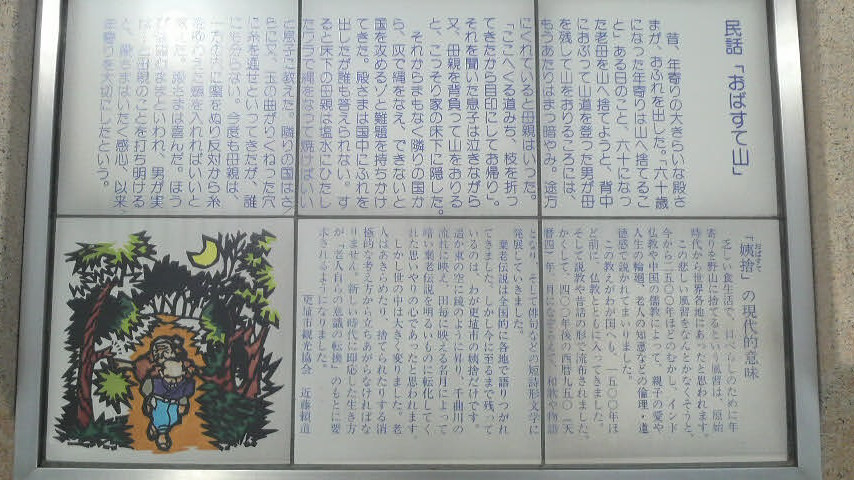 民話「おばすて山」
昔、年寄りの大きらいな殿さ
まが、おふれを出した。「六十歳
になった年寄りは山へ捨てるこ
と」ある日のこと、六十になっ
た老母を山へ捨てようと、背中
におぶって山道を登った男が母
を残して山をおりるころには、
もうあたりはまっ暗やみ。途方
にくれていると母親はいった。
「ここへくる道みち、枝を折っ
てきたから目印にしてお帰り」。
それを聞いた息子は泣きながら
又、母親を背負って山をおりる
と、こっそり家の床下に隠した。
それからまもなく隣りの国か
ら、灰で縄をなえ、できないと
国を攻めるゾと難題を持ちかけ
てきた。殿さまは国中にふれを
出したが誰も答えられない。す
ると床下の母親は塩水にひたし
たワラで縄をなって焼けばいい
と息子に教えた。隣りの国はさ
らに又、玉の曲がりくねった穴
に糸を通せといってきたが、誰
にもわからない。今度も母親は、
一方の穴に蜜をぬり反対から糸
をゆわえた蟻を入れればいいと
殿さまは喜んだ。ほう
びは望むままといわれ、男が実
はと母親のことを打ち明ける
と、殿さまはいたく感心、以来、
年寄りを大切にしたという。
「姨捨」の現代的意味
おばすて
乏しい食生活で、口べらしのために年
寄りを野山に捨てるという風習は、原始
時代から世界各地にあったと思われます。
この悲しい風習をなんとかなくそうと、
今から二、五〇〇年ほどのむかし、インド
仏教や中国の儒教によって、親子の愛や
人生の輪廻、老人の知恵などの倫理・道
徳感で説かれてまいりました。
この教えがわが国へも、一、五〇〇年ほ
ど前に、仏教とともに入ってきました。
そして説教や昔話の形で流布されました。
かくして、四〇〇年後の西暦九五〇（天
暦四）年、
和歌や物語
となり、そして俳句などの短詩形文学に
発展していきました。
棄老伝説は全国的に各地で語りつがれ
てきました。しかし今に至るまで残って
いるのは、わが更埴市の姨捨だけです。
遥か東の空に鏡のように昇り、千曲川の
流れに映え、田毎に映える名月によって
暗い棄老伝説を明るいものに転化してく
れた思いやりの心であったと思われます。
しかし世の中は大きく変りました。老
人はあきらめたり、捨てられたりする消
極的な考え方から立ちあがらなければな
りません。新しい時代に即応した生き方
が「老人自らの意識の転換」のもとに要
求されるようになりました。
更埴市観光協会　近藤